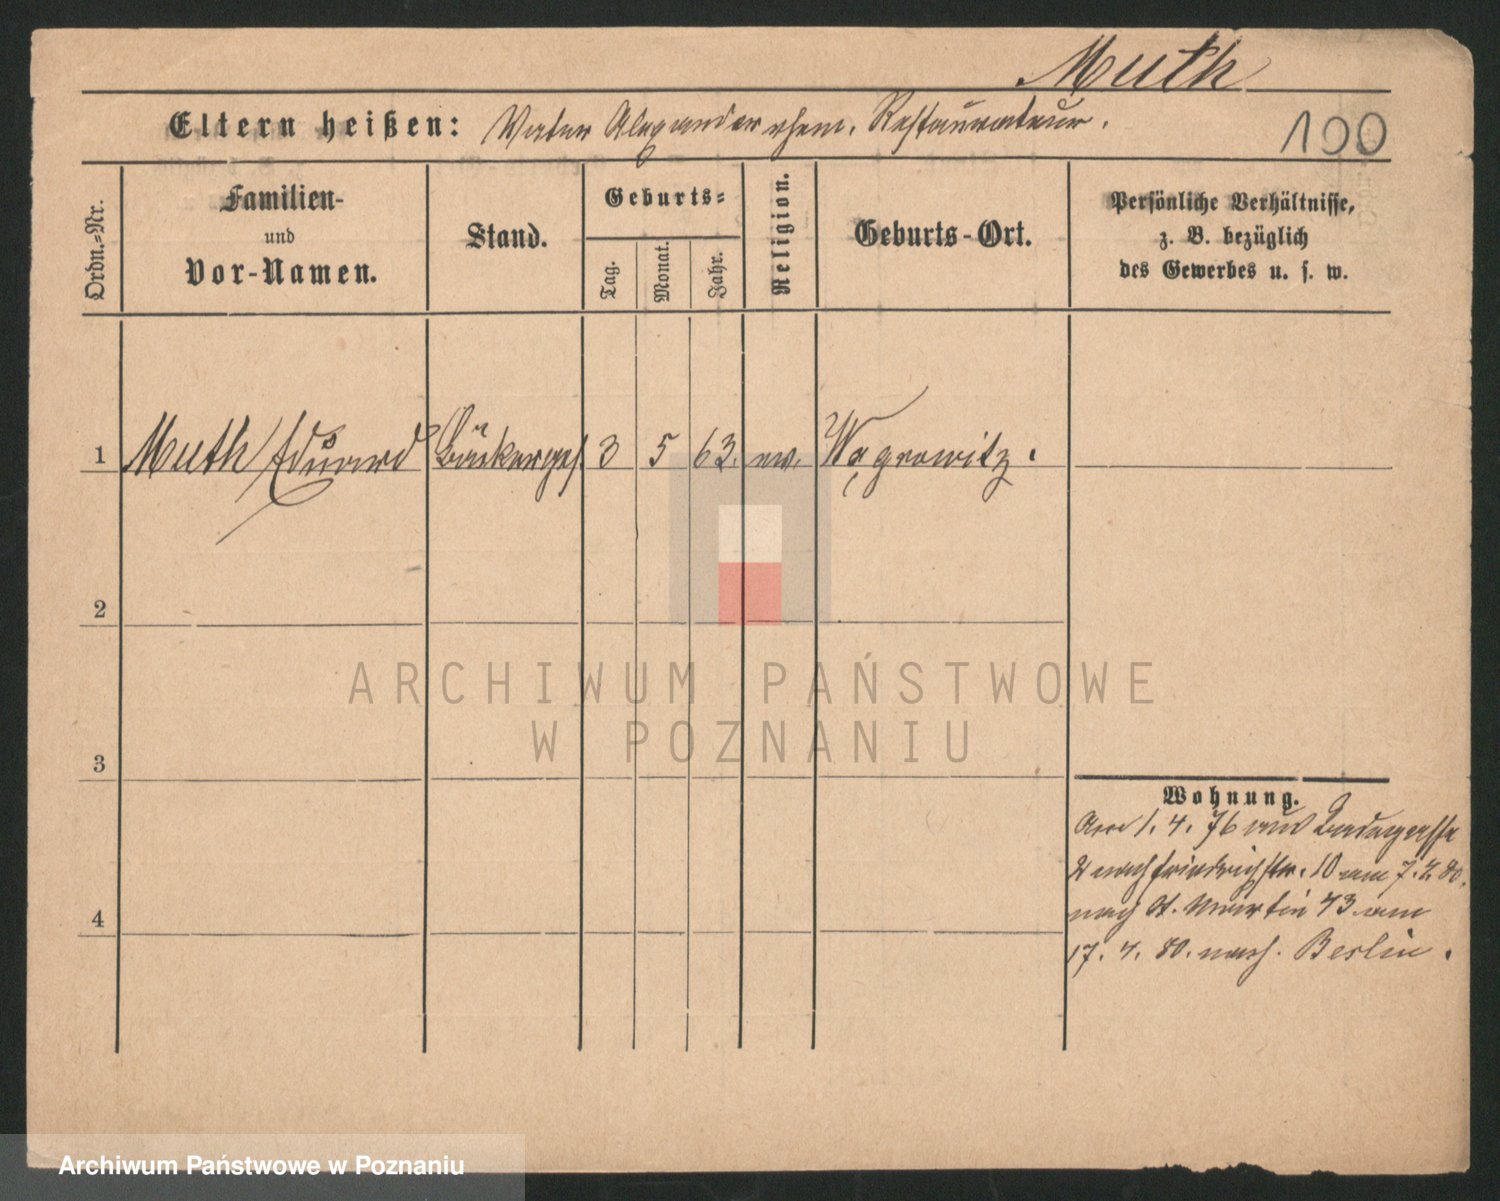 Muth
Eltern heißen: Vater Alexander ehem. Restaurateur.
100
Ordn.=Nr.
Familien-
und
Vor-Namen.
Stand.
Geburts=
Tag.
Monat.
Jahr.
Religion.
Geburts-Ort.
Persönliche Verhältnisse,
z. B. bezüglich
des Gewerbes u. s. w.
1 Muth Eduard Bäckerges. 3 5 63. ev. Wągrowitz.
2
3
4
Wohnung.
Am 1. 4. 76 aus
nach Friedrichstr. 10 am 7. 80.
nach St. Martin 43 am
17. 4. 80. nach Berlin.
ARCHIWUM PAŃSTWOWE
W POZNANIU
Archiwum Państwowe w Poznaniu